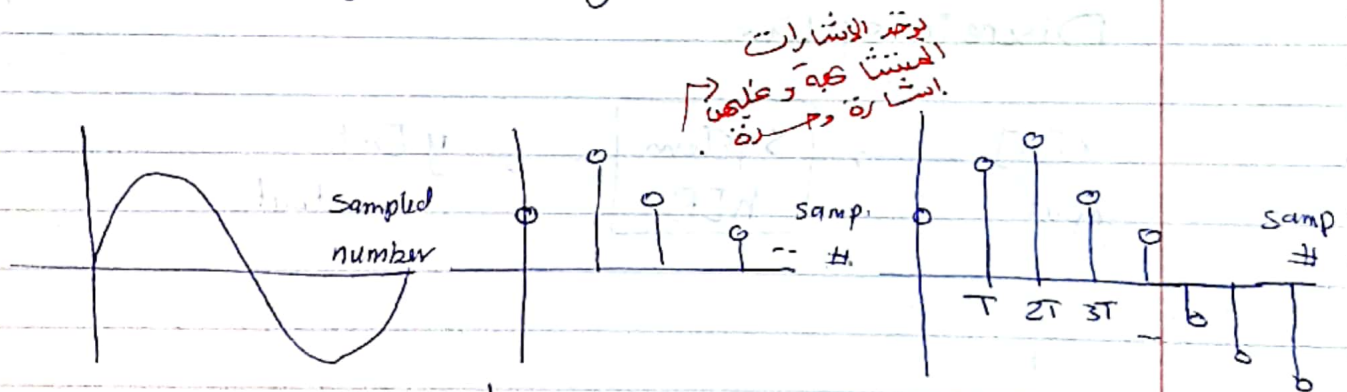 يوخذ الاشارات
المتشابهة و خليهن
اشارة وحدة.
sampled
number
samp.
#.
samp
#
T 2T 3T